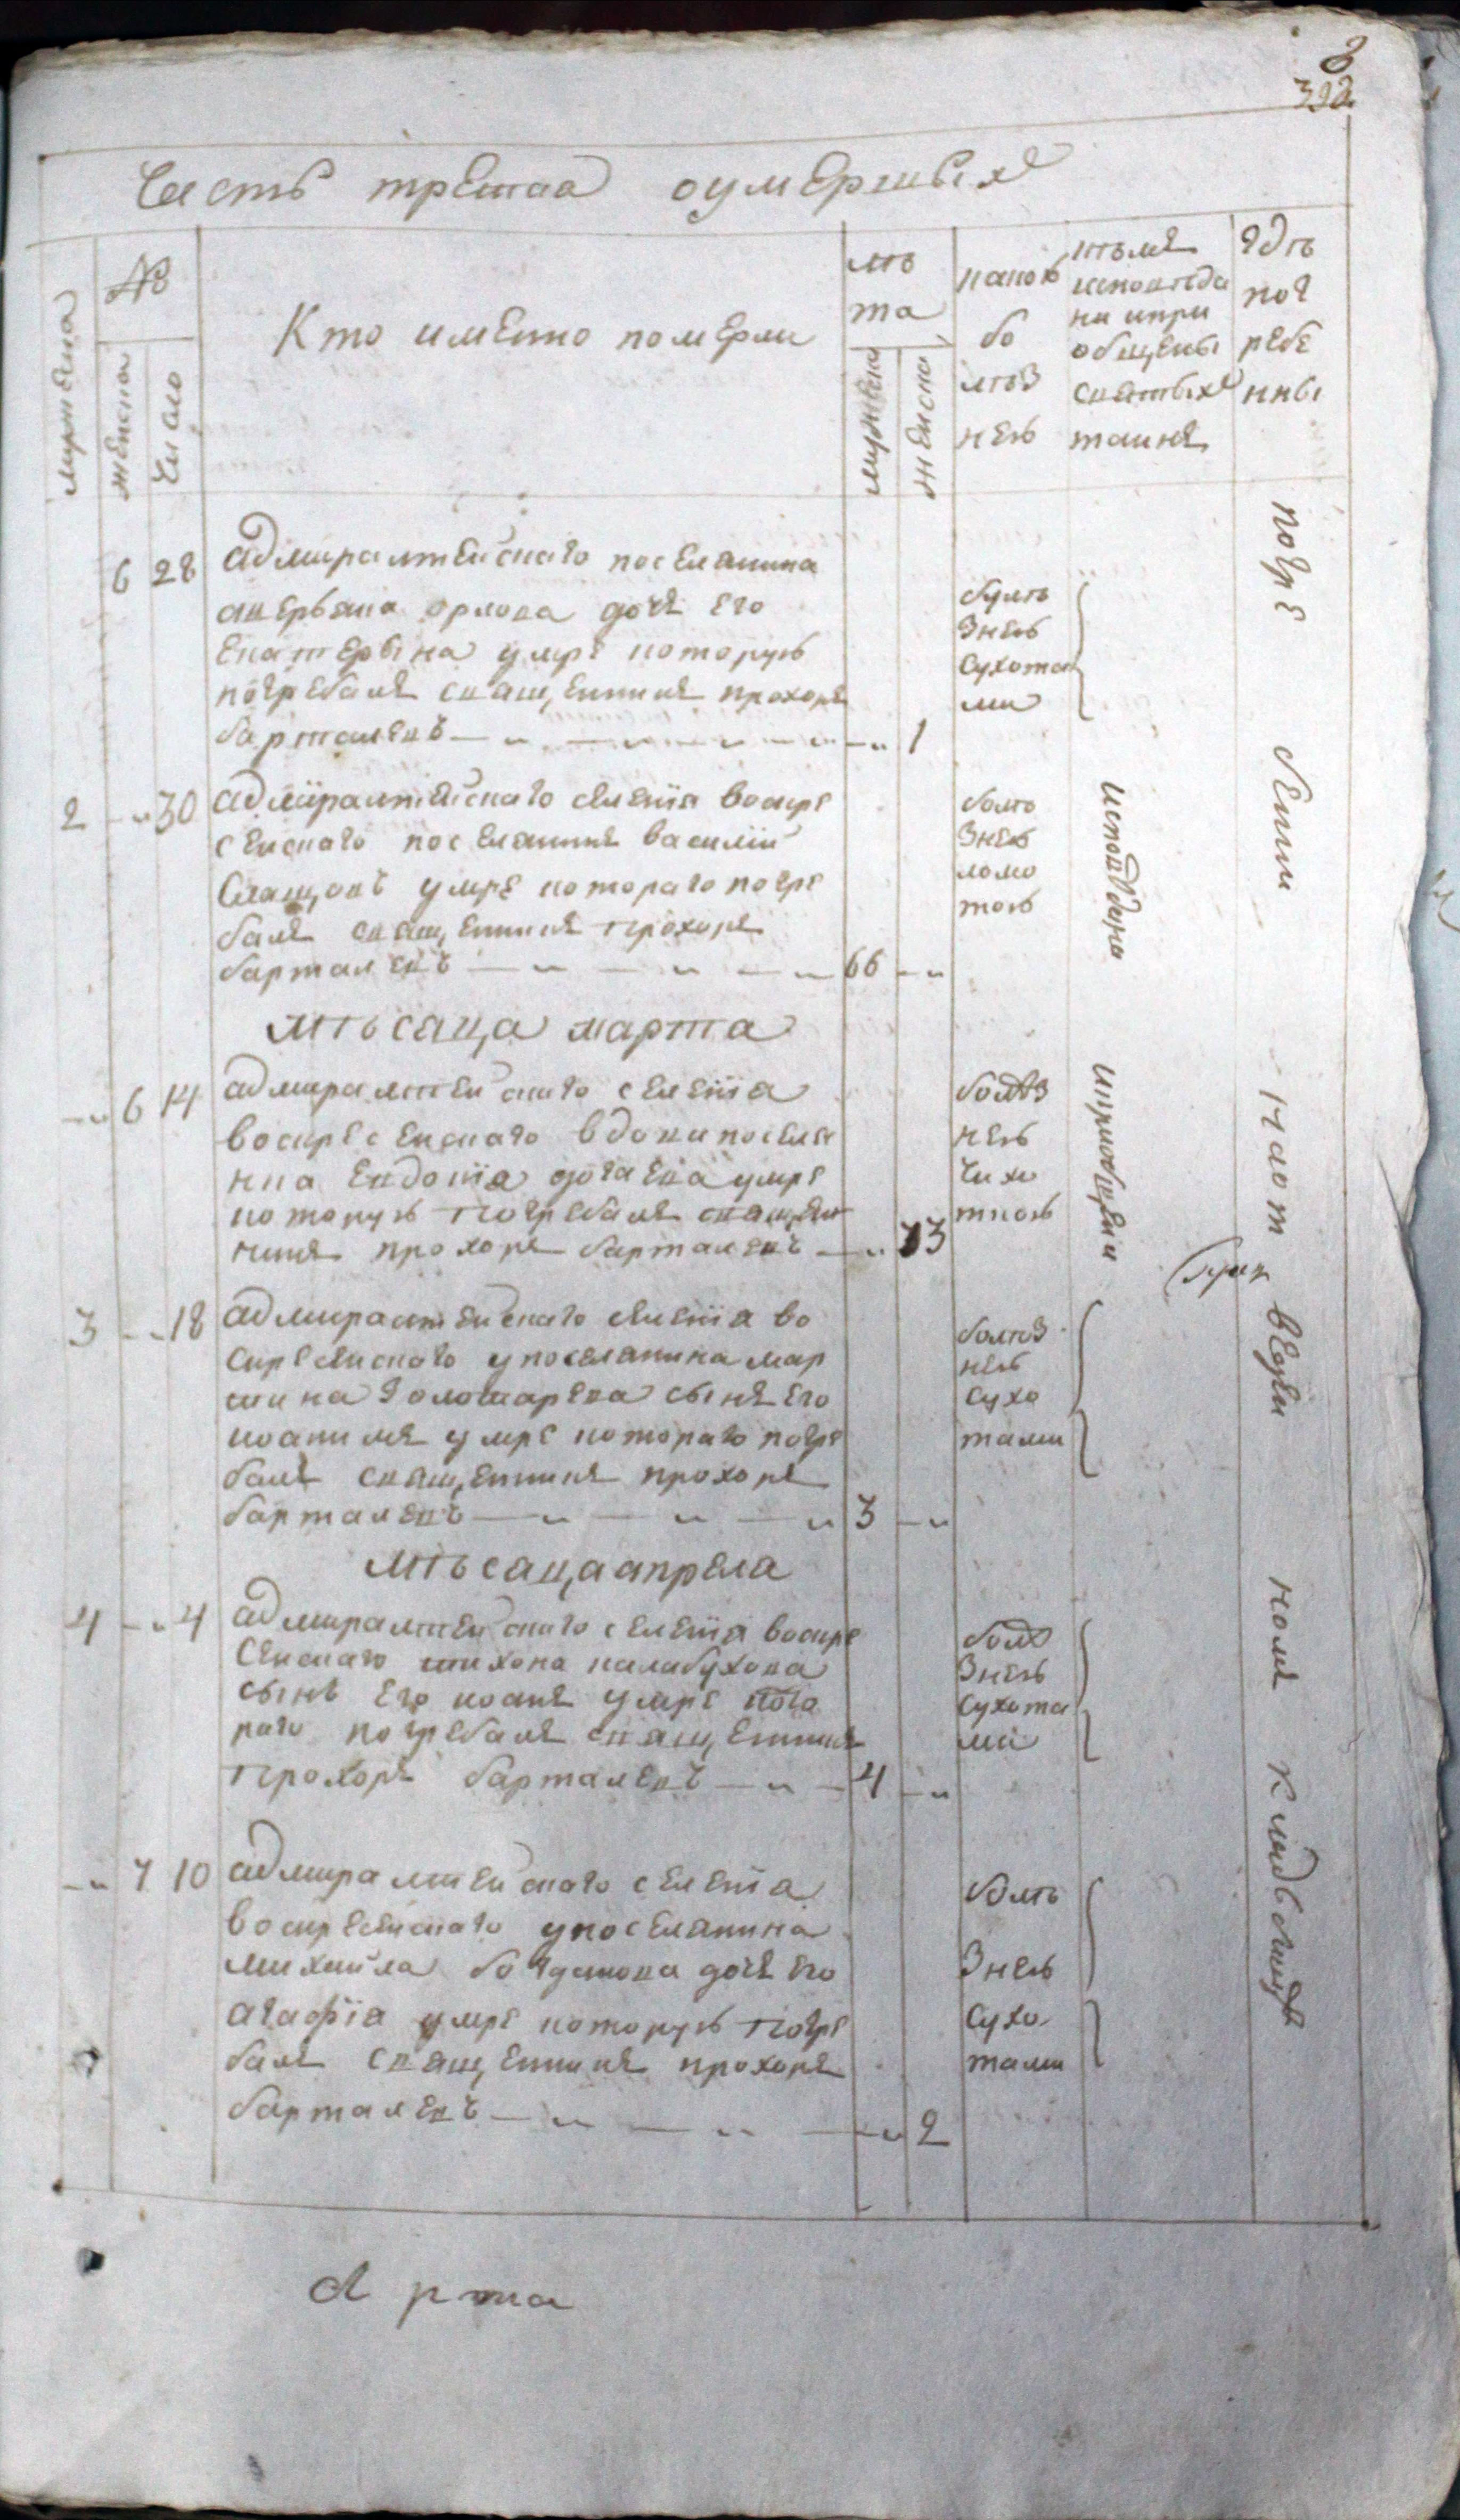 Часть третая оумершыхъ
№
мужеска
женска
Число
Кто именно померли
лѣ
та
мужеска
женска
какою
бо
лѣз
нею
кѣмъ
исповѣда
ни и при
общены
святыхъ
таинъ
гдѣ
пог
ребе
нны
6 28 адмиралтейскаго поселянина
аверьяна орлова дочъ его
екатерына умре которую
погребалъ священникъ прохоръ
барталевъ 1
болѣ
знею
сухота
ми
2 30 адмїралтейскаго селенїя воскре
сенскаго поселянинъ василїй
умре котораго погре
балъ священникъ прохоръ
барталевъ 66
болѣ
знею
ломо
тою
мѣсяца марта
6 14 адмиралтейскаго селенїя
воскресенскаго вдова поселя
нка евдокїя умре
которую погребалъ священ
никъ прохоръ барталевъ 73
болѣз
нею
чихо
ткою
3 18 адмиралтейскаго селенїя во
скресенскаго у поселянина мар
тина сынъ его
иоакимъ умре котораго погре
балъ священникъ прохоръ
барталевъ 3
болѣз
нею
сухо
тами
мѣсяца апреля
4 4 адмиралтейскаго селенїя воскре
сенскаго тихона калабухова
сынъ его иоанъ умре кото
раго погребалъ священникъ
прохоръ барталевъ 4
болѣ
знею
сухота
ми
7 10 адмиралтейскаго селенїя
воскресенскаго у поселянина
михайла богданова дочъ его
агафїя умре которую погре
балъ священникъ прохоръ
барталевъ 2
болѣ
знею
сухо
тами
исповѣдана
и приобщена
погре бении на от веден номъ кладбищѣ